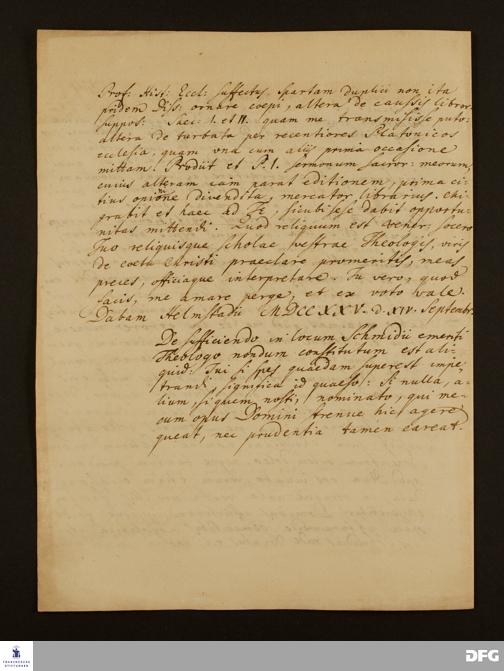 Prof: Hist: Eccl: suffectus Spartam duplici non ita
pridem Diss: ornare coepi, altera de caussis libror:
suppos: Saec: I. et II. quam me transmisisse puto:
altera de turbata per recentiores Platonicos
ecclesia, quam vna cum aliis prima occasione
mittam. Prodiit et P. I. sermonum sacror: meorum,
cuius alteram iam parat editionem, prima ci-
tius opinione divendita, mercator librarius.
grabit et haec ad Te, sicubi sese dabit opportu-
nitas mittendi. Quod reliquum est, Vener: socero
Tuo reliquisque scholae vestrae Theologis, viris
de coetu Christi praeclare promeritis, meas
preces, officiaque interpretare. Tu vero, quod
facis, me amare perge, et ex voto vale.
Dabam Helmstadii MDCCXXV. d. XIV. Septembr.
De sufficiendo in locum Schmidii emeriti
Theologo nondum constitutum est ali-
quid: Tui si spes quaedam superest impe-
trandi, significa id quaeso: Si nulla, a-
lium, si quem nosti, nominato, qui me-
cum opus Domini strenue hic agere
queat, nec prudentia tamen careat.
FRANCKESCHE
STIFTUNGEN
DFG